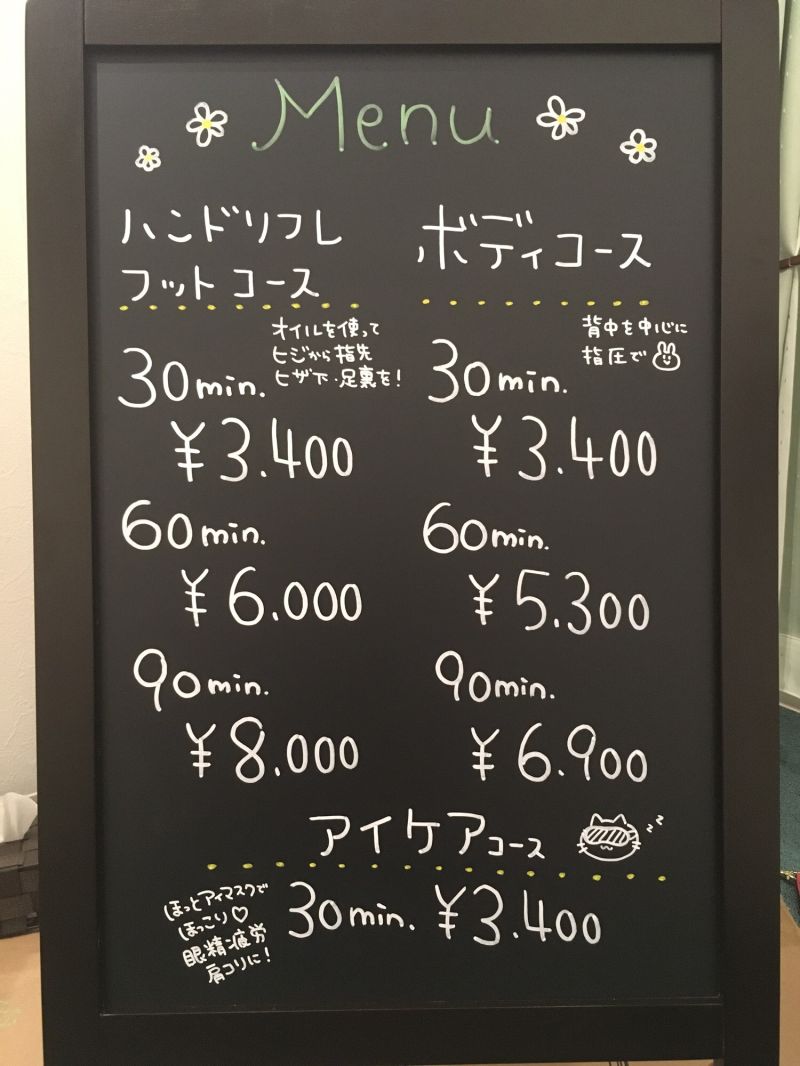 Menu
ハンドリフレ
フットコース
オイルを使って
ヒジから指先
ヒザ下・足裏を!
30min.
¥3.400
60min.
¥6.000
90min.
¥8.000
ボディコース
背中を中心に
指圧で
30min.
¥3.400
60min.
¥5.300
90min.
¥6.900
アイケアコース
zz
ほっとアイマスクで
ほっこり♡
眼精疲労
肩コリに!
30min. ¥3.400